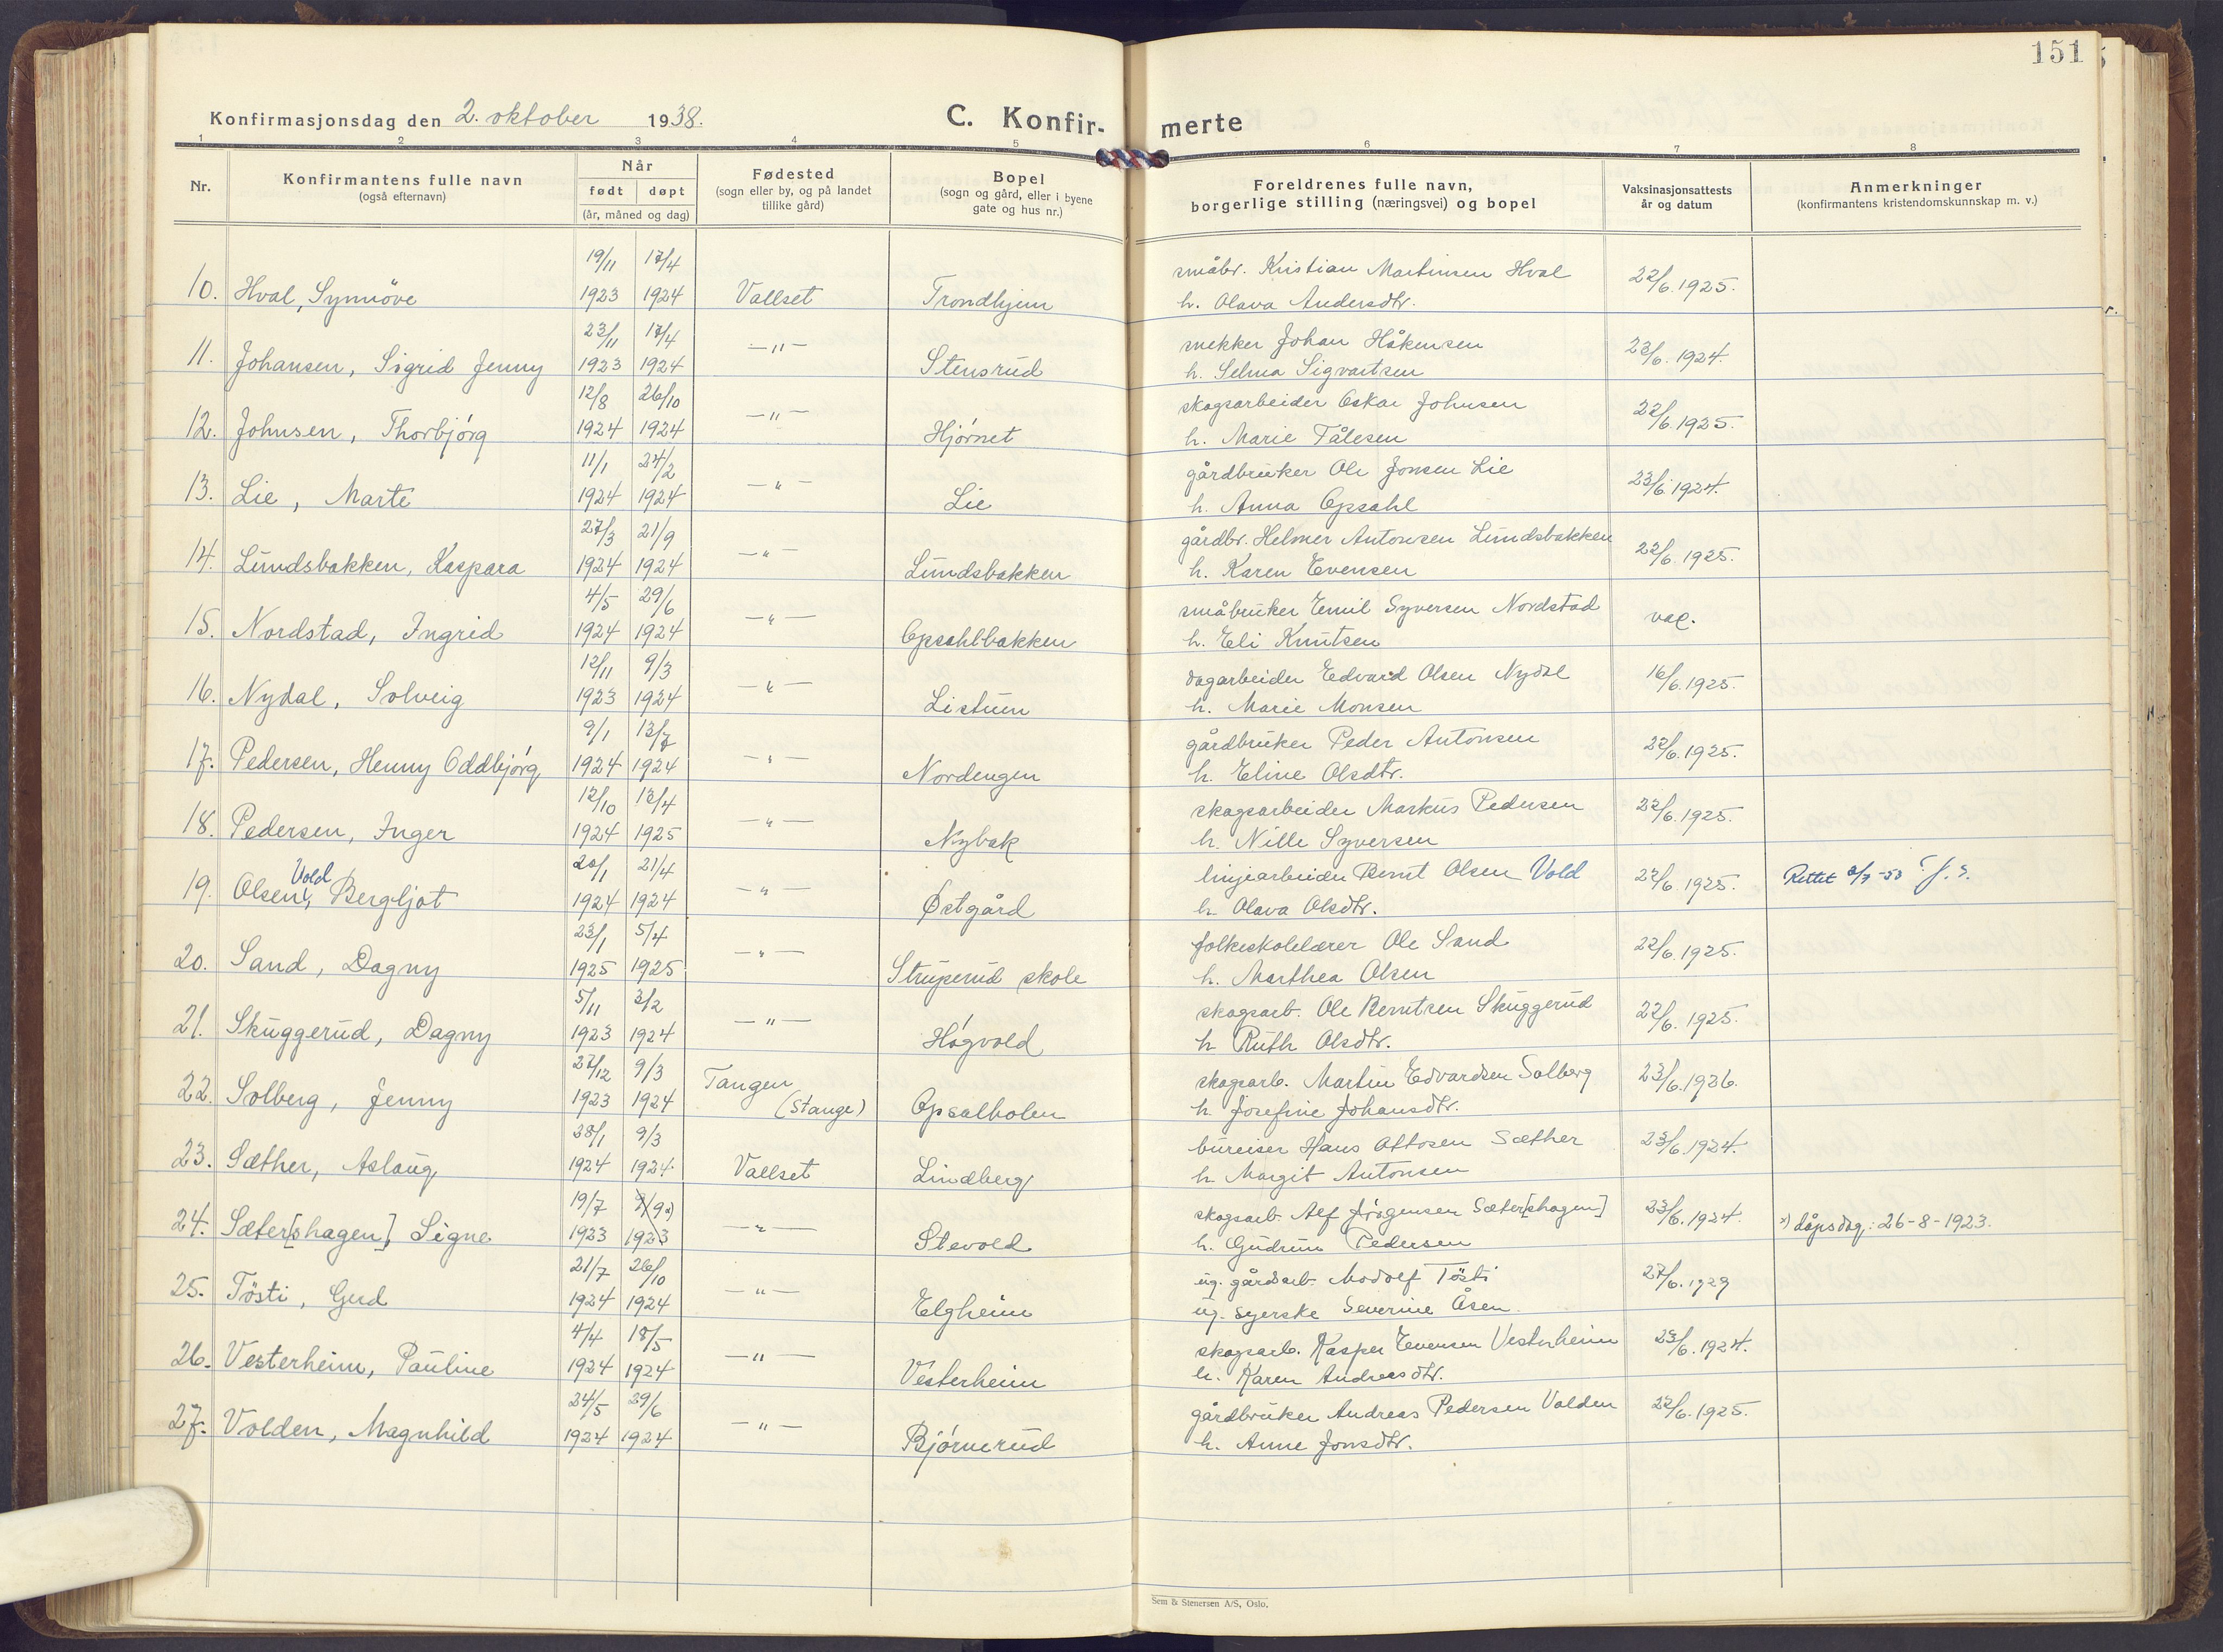 151
Konfirmasjonsdag den 2. oktober 1938.
C. Konfir- merte
1 2 3 4 5 6 7 8
Nr.
Konfirmantens fulle navn
(også efternavn)
Når
født døpt
(år, måned og dag)
Fødested
(sogn eller by, og på landet
tillike gård)
Bopel
(sogn og gård, eller i byene
gate og hus nr.)
Foreldrenes fulle navn,
borgerlige stilling (næringsvei) og bopel
Vaksinasjonsattests
år og datum
Anmerkninger
(konfirmantens kristendomskunnskap m. v.)
19/11 17/4 småbr. Kristian Martinsen Hval 22/6.1925.
10. Hval, Synnöve 1923 1924 Vallset Trondhjem h. Olava Andersdtr.
23/11 17/4 —"— snekker Johan Håkensen 23/6.1924.
11. Johansen, Sigrid Jenny 1923 1924 Stensrud h. Selma Sigvartsen
12/8 26/10 —"— skogsarbeider Oskar Johnsen 22/6.1925.
12. Johnsen, Thorbjórg 1924 1924 Hjórnet h. Marie Tålesen
11/1 24/2 —"— gårdbruker Ole Jonsen Lie 23/6.1924.
13. Lie, Marte 1924 1924 Lie h. Anna Opsahl
27/3 21/9 —"— gårdbr. Helmer Antonsen Lundsbakken 22/6.1925.
14. Lundsbakken, Kaspara 1924 1924 Lundsbakken h. Karen Evensen
4/5 29/6 —"— småbruker Emil Syversen Nordstad vac.
15. Nordstad, Ingrid 1924 1924 Opsahlbakken h. Eli Knutsen
12/11 9/3 —"— dagarbeider Edvard Olsen Nydal 16/6.1925.
16. Nydal, Solveig 1923 1924 Listum h. Marie Monsen
9/1 13/7 —"— gårdbruker Peder Antonsen 22/6.1925.
17. Pedersen, Henny Oddbjórg 1924 1924 Nordengen h. Eline Olsdtr.
12/10 12/4 —"— skogsarbeider Markus Pedersen 22/6.1925.
18. Pedersen, Inger 1924 1925 Nybak h. Nille Syversen
Vold 20/1 21/4 —"— linjearbeider Bernt Olsen Vold 22/6.1925. Rettet
19. Olsen, Bergljot 1924 1924 Østgård h. Olava Olsdtr.
23/1 5/4 —"— folkeskolelærer Ole Sand 22/6.1925.
20. Sand, Dagny 1925 1925 Struperud skole h. Marthea Olsen
5/11 3/2 —"— skogsarb. Ole Berntsen Skuggerud 22/6.1925.
21. Skuggerud, Dagny 1923 1924 Hógvold h. Ruth Olsdtr.
27/12 9/3 Tangen skogsarb. Martin Edvardsen Solberg 23/6.1926.
22. Solberg, Jenny 1923 1924 (Stange) Opsalholen h. Josefine Johansdtr.
28/1 9/3 bureiser Hans Ottosen Sæther 23/6.1924.
23. Sæther, Aslaug 1924 1924. Vallset Lindberg h. Margit Antonsen
19/7 skogsarb. Alf Jórgensen Sæter[shagen] 23/6.1924. x) dåpsdag: 26-8-1923.
24. Sæter[shagen], Signe 1923 1923 —"— Stevold h. Gudrun Pedersen
21/7 26/10 —"— ug. gårdsarb. Modolf Tösti 27/6.1929
25. Tösti, Gerd 1924 1924 Elgheim ug. syerske Severine Åsen.
4/4 18/5 —"— skogsarb. Kasper Evensen Vesterheim 23/6.1924.
26. Vesterheim, Pauline 1924 1924 Vesterheim h. Karen Andreasdtr.
24/5 29/6 —"— gårdbruker Andreas Pedersen Volden 22/6.1925.
27. Volden, Magnhild 1924 1924 Bjórnerud h. Anne Jonsdtr.
Sem & Stenersen A/S, Oslo.